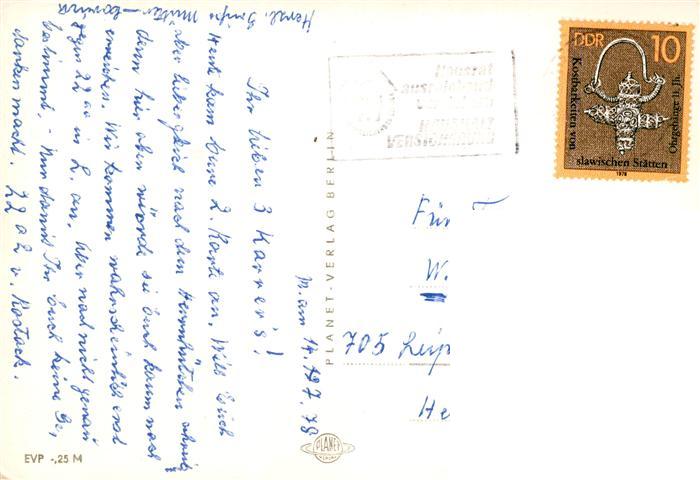 Herzl. Grüße Mutter
Ihr lieben 3 Karrer's!
Heute kam Eure 2. Karte an. Will Euch
aber lieber gleich nach dem
denn hier oben würde sie Euch kaum noch
erreichen. Wir kommen wahrscheinlich erst
gegen 22 00 in L. an. Wer noch nicht genau
bestimmt. - Nun damit Ihr Euch keine Ge-
danken macht. 22 ab v. Rostock.
W. am 14. 7. 78
PLANET-VERLAG BERLIN
EVP -,25 M
PLANET
VERLAG
DDR 10
Kostbarkeiten von
slawischen Stätten
Ohrgehänge 11. Jh.
1978
Für
W.
705 Leip
He